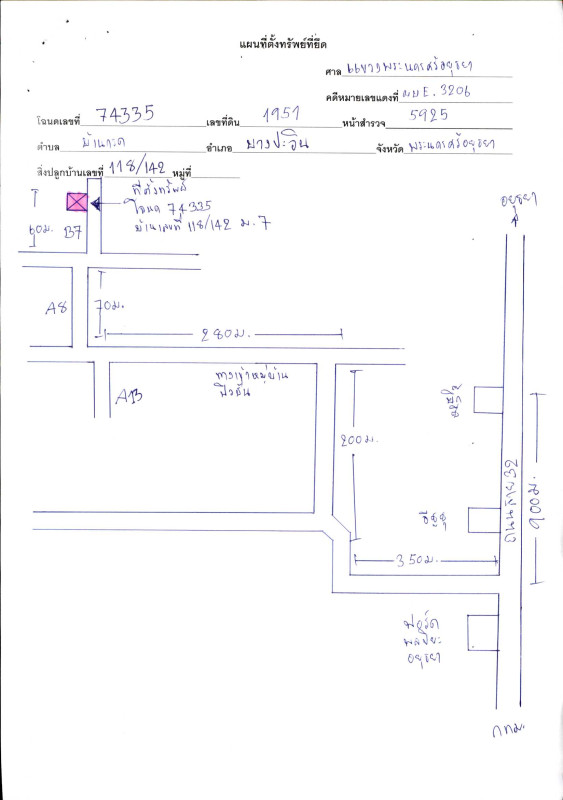 แผนที่ตั้งทรัพย์ที่ยึด
ศาล แขวงพระนครศรีอยุธยา
คดีหมายเลขแดงที่ ผบE. 3206
โฉนดเลขที่ 74335 เลขที่ดิน 1951 หน้าสำรวจ 5925
ตำบล อำเภอ บางปะอิน จังหวัด พระนครศรีอยุธยา
สิ่งปลูกบ้านเลขที่ 118/142 หมู่ที่
ที่ตั้งทรัพย์
โฉนด 74335
บ้านเลขที่ 118/142 ม.7
อยุธยา
60ม. B7
A8
70ม.
280ม.
A13
ทางเข้าหมู่บ้าน
200ม.
ถนนสาย 32
900ม.
อีซูซุ
350ม.
ฟอร์ด
พลปิยะ
อยุธยา
กทม.